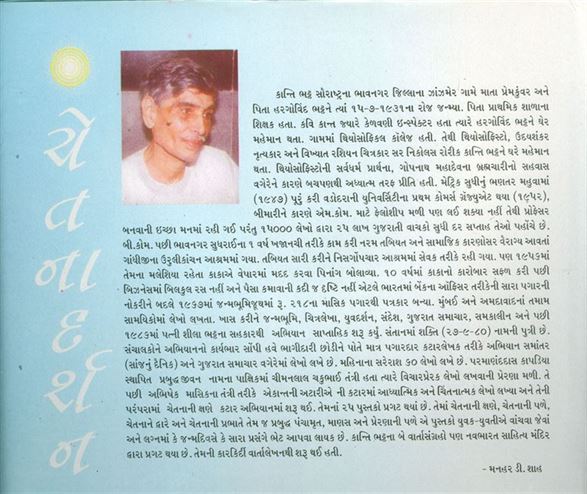 ચેતનાદર્શન
કાન્તિ ભટ્ટ સૌરાષ્ટ્રના ભાવનગર જિલ્લાના ઝાંઝમેર ગામે માતા પ્રેમકુંવર અને
પિતા હરગોવિંદ ભટ્ટને ત્યાં ૧૫-૭-૧૯૩૧ના રોજ જન્મ્યા. પિતા પ્રાથમિક શાળાના
શિક્ષક હતા. કવિ કાન્ત જ્યારે કેળવણી ઇન્સ્પેક્ટર હતા ત્યારે હરગોવિંદ ભટ્ટને ઘેર
મહેમાન થતા. ગામમાં થિયોસોફિકલ કૉલેજ હતી. તેથી થિયોસોફિસ્ટો, ઉદયશંકર
નૃત્યકાર અને વિખ્યાત રશિયન ચિત્રકાર સર નિકોલસ રોરીક કાન્તિ ભટ્ટને ઘરે મહેમાન
થતા. થિયોસોફિસ્ટોની સર્વધર્મ પ્રાર્થના, ગોપનાથ મહાદેવના બ્રહ્મચારીનો સહવાસ
વગેરેને કારણે બચપણથી અધ્યાત્મ તરફ પ્રીતિ હતી. મેટ્રિક સુધીનું ભણતર મહુવામાં
(૧૯૪૭) પૂરું કરી વડોદરાની યુનિવર્સિટીના પ્રથમ કોમર્સ ગ્રેજ્યુએટ થયા (૧૯૫૨),
બીમારીને કારણે એમ.કોમ. માટે ફેલોશીપ મળી પણ લઈ શક્યા નહીં તેથી પ્રોફેસર
બનવાની ઇચ્છા મનમાં રહી ગઈ પરંતુ ૧૫૦૦૦ લેખો દ્વારા ૨૫ લાખ ગુજરાતી વાચકો સુધી દર સપ્તાહ તેઓ પહોંચે છે.
બી.કોમ. પછી ભાવનગર સુધરાઈના ૧ વર્ષ ખજાનચી તરીકે કામ કરી નરમ તબિયત અને સામાજિક કારણોસર વેરાગ્ય આવતાં
ગાંધીજીના ઉરુલીકાંચન આશ્રમમાં ગયા. તબિયત સારી કરીને નિસર્ગોપચાર આશ્રમમાં સેવક તરીકે રહી ગયા. પણ ૧૯૫૬માં
તેમના મલેશિયા રહેતા કાકાએ વેપારમાં મદદ કરવા પિનાંગ બોલાવ્યા. ૧૦ વર્ષમાં કાકાનો કારોબાર સફળ કરી પછી
બિઝનેસમાં બિલકુલ રસ નહીં અને પૈસા કમાવાની કદી જ દૃષ્ટિ નહીં એટલે ભારતમાં બેંકના ઑફિસર તરીકેની સારા પગારની
નોકરીને બદલે ૧૯૬૭માં જન્મભૂમિજૂથમાં રૂ. ૨૧૮ના માસિક પગારથી પત્રકાર બન્યા. મુંબઈ અને અમદાવાદનાં તમામ
સામયિકોમાં લેખો લખતા. ખાસ કરીને જન્મભૂમિ, ચિત્રલેખા, યુવદર્શન, સંદેશ, ગુજરાત સમાચાર, સમકાલીન અને પછી
૧૯૮૬માં પત્ની શીલા ભટ્ટના સહકારથી અભિયાન સાપ્તાહિક શરૂ કર્યું. સંતાનમાં શક્તિ (૨૭-૯-૮૦) નામની પુત્રી છે.
સંચાલકોને અભિયાનનો કાર્યભાર સોંપી હવે ભાગીદારી છોડીને પોતે માત્ર પગારદાર કટારલેખક તરીકે અભિયાન સમાંતર
(સાંજનું દૈનિક) અને ગુજરાત સમાચાર વગેરેમાં લેખો લખે છે. મહિનાના સરેરાશ ૬૦ લેખો લખે છે. પરમાણંદદાસ કાપડિયા
સ્થાપિત પ્રબુદ્ધ જીવન નામના પાક્ષિકમાં ચીમનલાલ ચકુભાઈ તંત્રી હતા ત્યારે વિચારપ્રેરક લેખો લખવાની પ્રેરણા મળી. તે
પછી અભિષેક માસિકના તંત્રી તરીકે એકાન્તની અટારીએ ની કટારમાં આધ્યાત્મિક અને ચિંતનાત્મક લેખો લખ્યા અને તેની
પરંપરામાં ચેતનાની ક્ષણે કટાર અભિયાનમાં શરૂ થઈ. તેમનાં ૨૫ પુસ્તકો પ્રગટ થયાં છે. તેમાં ચેતનાની ક્ષણે, ચેતનાની પળે,
ચેતનાને દ્વારે અને ચેતનાની પ્રભાતે તેમ જ પ્રબુદ્ધ પંચામૃત, માણસ અને પ્રેરણાની પળે એ પુસ્તકો યુવક-યુવતીએ વાંચવા જેવાં
અને લગ્નમાં કે જન્મદિવસે કે સારા પ્રસંગે ભેટ આપવા લાયક છે. કાન્તિ ભટ્ટના બે વાર્તાસંગ્રહો પણ નવભારત સાહિત્ય મંદિર
દ્વારા પ્રગટ થયા છે. તેમની કારકિર્દી વાર્તાલેખનથી શરૂ થઈ હતી.
- મનહર ડી. શાહ